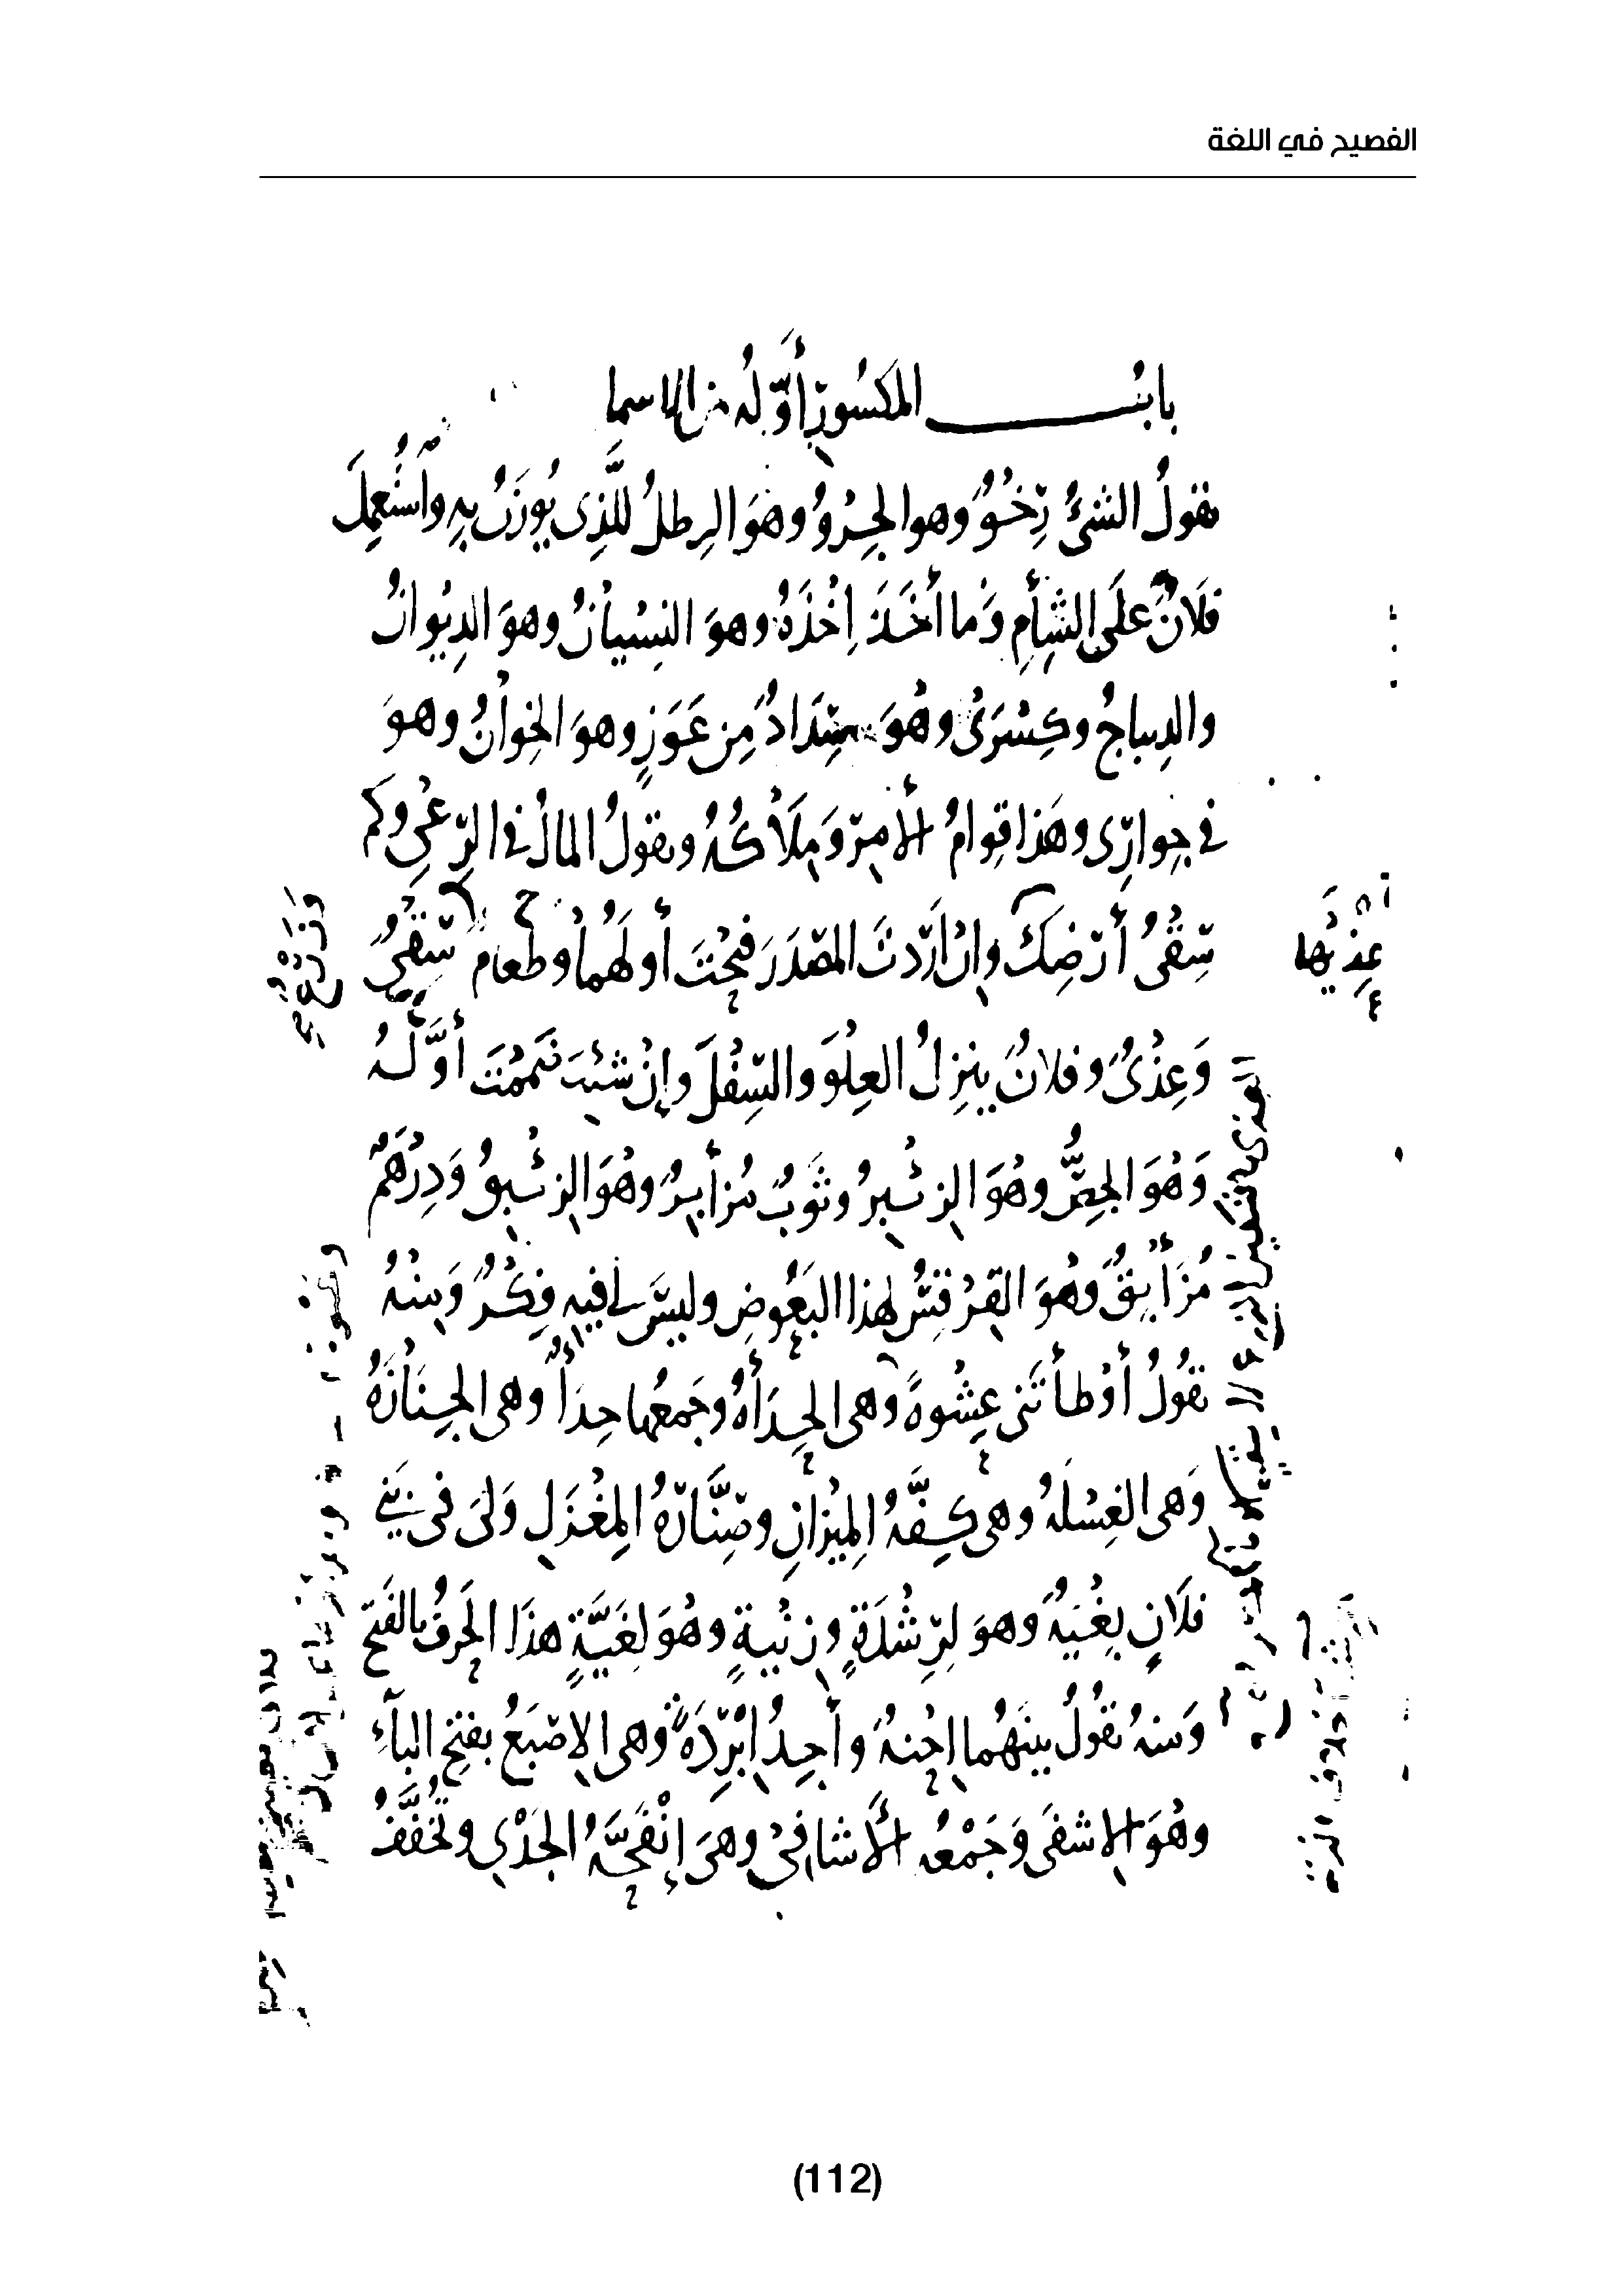 الفصيح في اللغة
بابُ المكسورِ أَوَّلُه من الاسما
تقولُ الشئُ رِخْوٌ وهو الجِرْوُ وهوَ الرِطلُ للَّذِى يُوزَنُ بِهِ واسْتُعمِلَ
فلَانٌ علَى الشَأمِ وَما أَخَذَ إِخْذَهُ وهوَ النِسْيانُ وهوَ الدِيْوانُ
والدِيباجُ وكِسْرَىْ وهُوَ سِدَادٌ مِن عَوَزٍ وهوَ الخِوَانُ وهوَ
في جِوارِى وهَذا قِوامُ الأمِرِ وَمِلَاكُهُ وتقولُ المالُ في الرِّعْىِ وكم
سِقْىُ أَرْضِكَ وإنْ أَرَدْتَ المصْدَرَ فَتحْتَ أَولَهُما وطَعَامٌ سِقْىٌ
عِذْيُها
وَعِذْىٌ وفلانٌ ينزِلُ العِلْوَ والسِّفْلَ وإنْ شئتَ ضَمَمْتَ أوَّلَهُ
وَهُوَ الجِصُّ وهُوَ الزِئْبِرُ وثَوْبٌ مُزَأْبِرٌ وهُوَ الزِئْبِقُ وَدِرْهَمٌ
مُزَأْبَقٌ وَهُوَ القِرْقِسُ لهذا البَعُوضِ وليسَ لي فيهِ فِكْرٌ وَمِنْهُ
تقُولُ أَوْطَأْتَنى عِشْوةً وَهى الحِدَأَةُ وجَمعُها حِدَأٌ وهى الجِنَازَةُ
وَهى الغِسْلَةُ وهى كِفَّةُ المِيْزانِ وصِنَّارَةُ المِغْزَلِ وَلىَ فى بَنِي
فلَانٍ بِغْيَةٌ وَهوَ لِرِشْدَةٍ وزِنْيةٍ وهُوَ لِغَيَّةٍ هذَا الحَرفُ بالفَتح
وَمنهُ تقُولُ بينَهُما إحْنةٌ وأَجِدُ إبْرِدَةً وهى الإصْبَعُ بفتحِ الباَءِ
وهُوَ الإشفَى وَجَمْعُه الأَشافىْ وهىَ إنْفَحَّةُ الجَدْيِ وتُخَفَّفُ
(112)